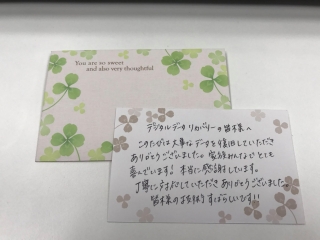 You are so sweet
and also very thoughtful
デジタルデータリカバリーの皆様へ
このたびは大事なデータを復旧していただき
ありがとうございました。家族みんなでとても
喜んでいます。本当に感謝しています。
丁寧に対応していただきありがとうございました。
皆様のお技術すばらしいです!!